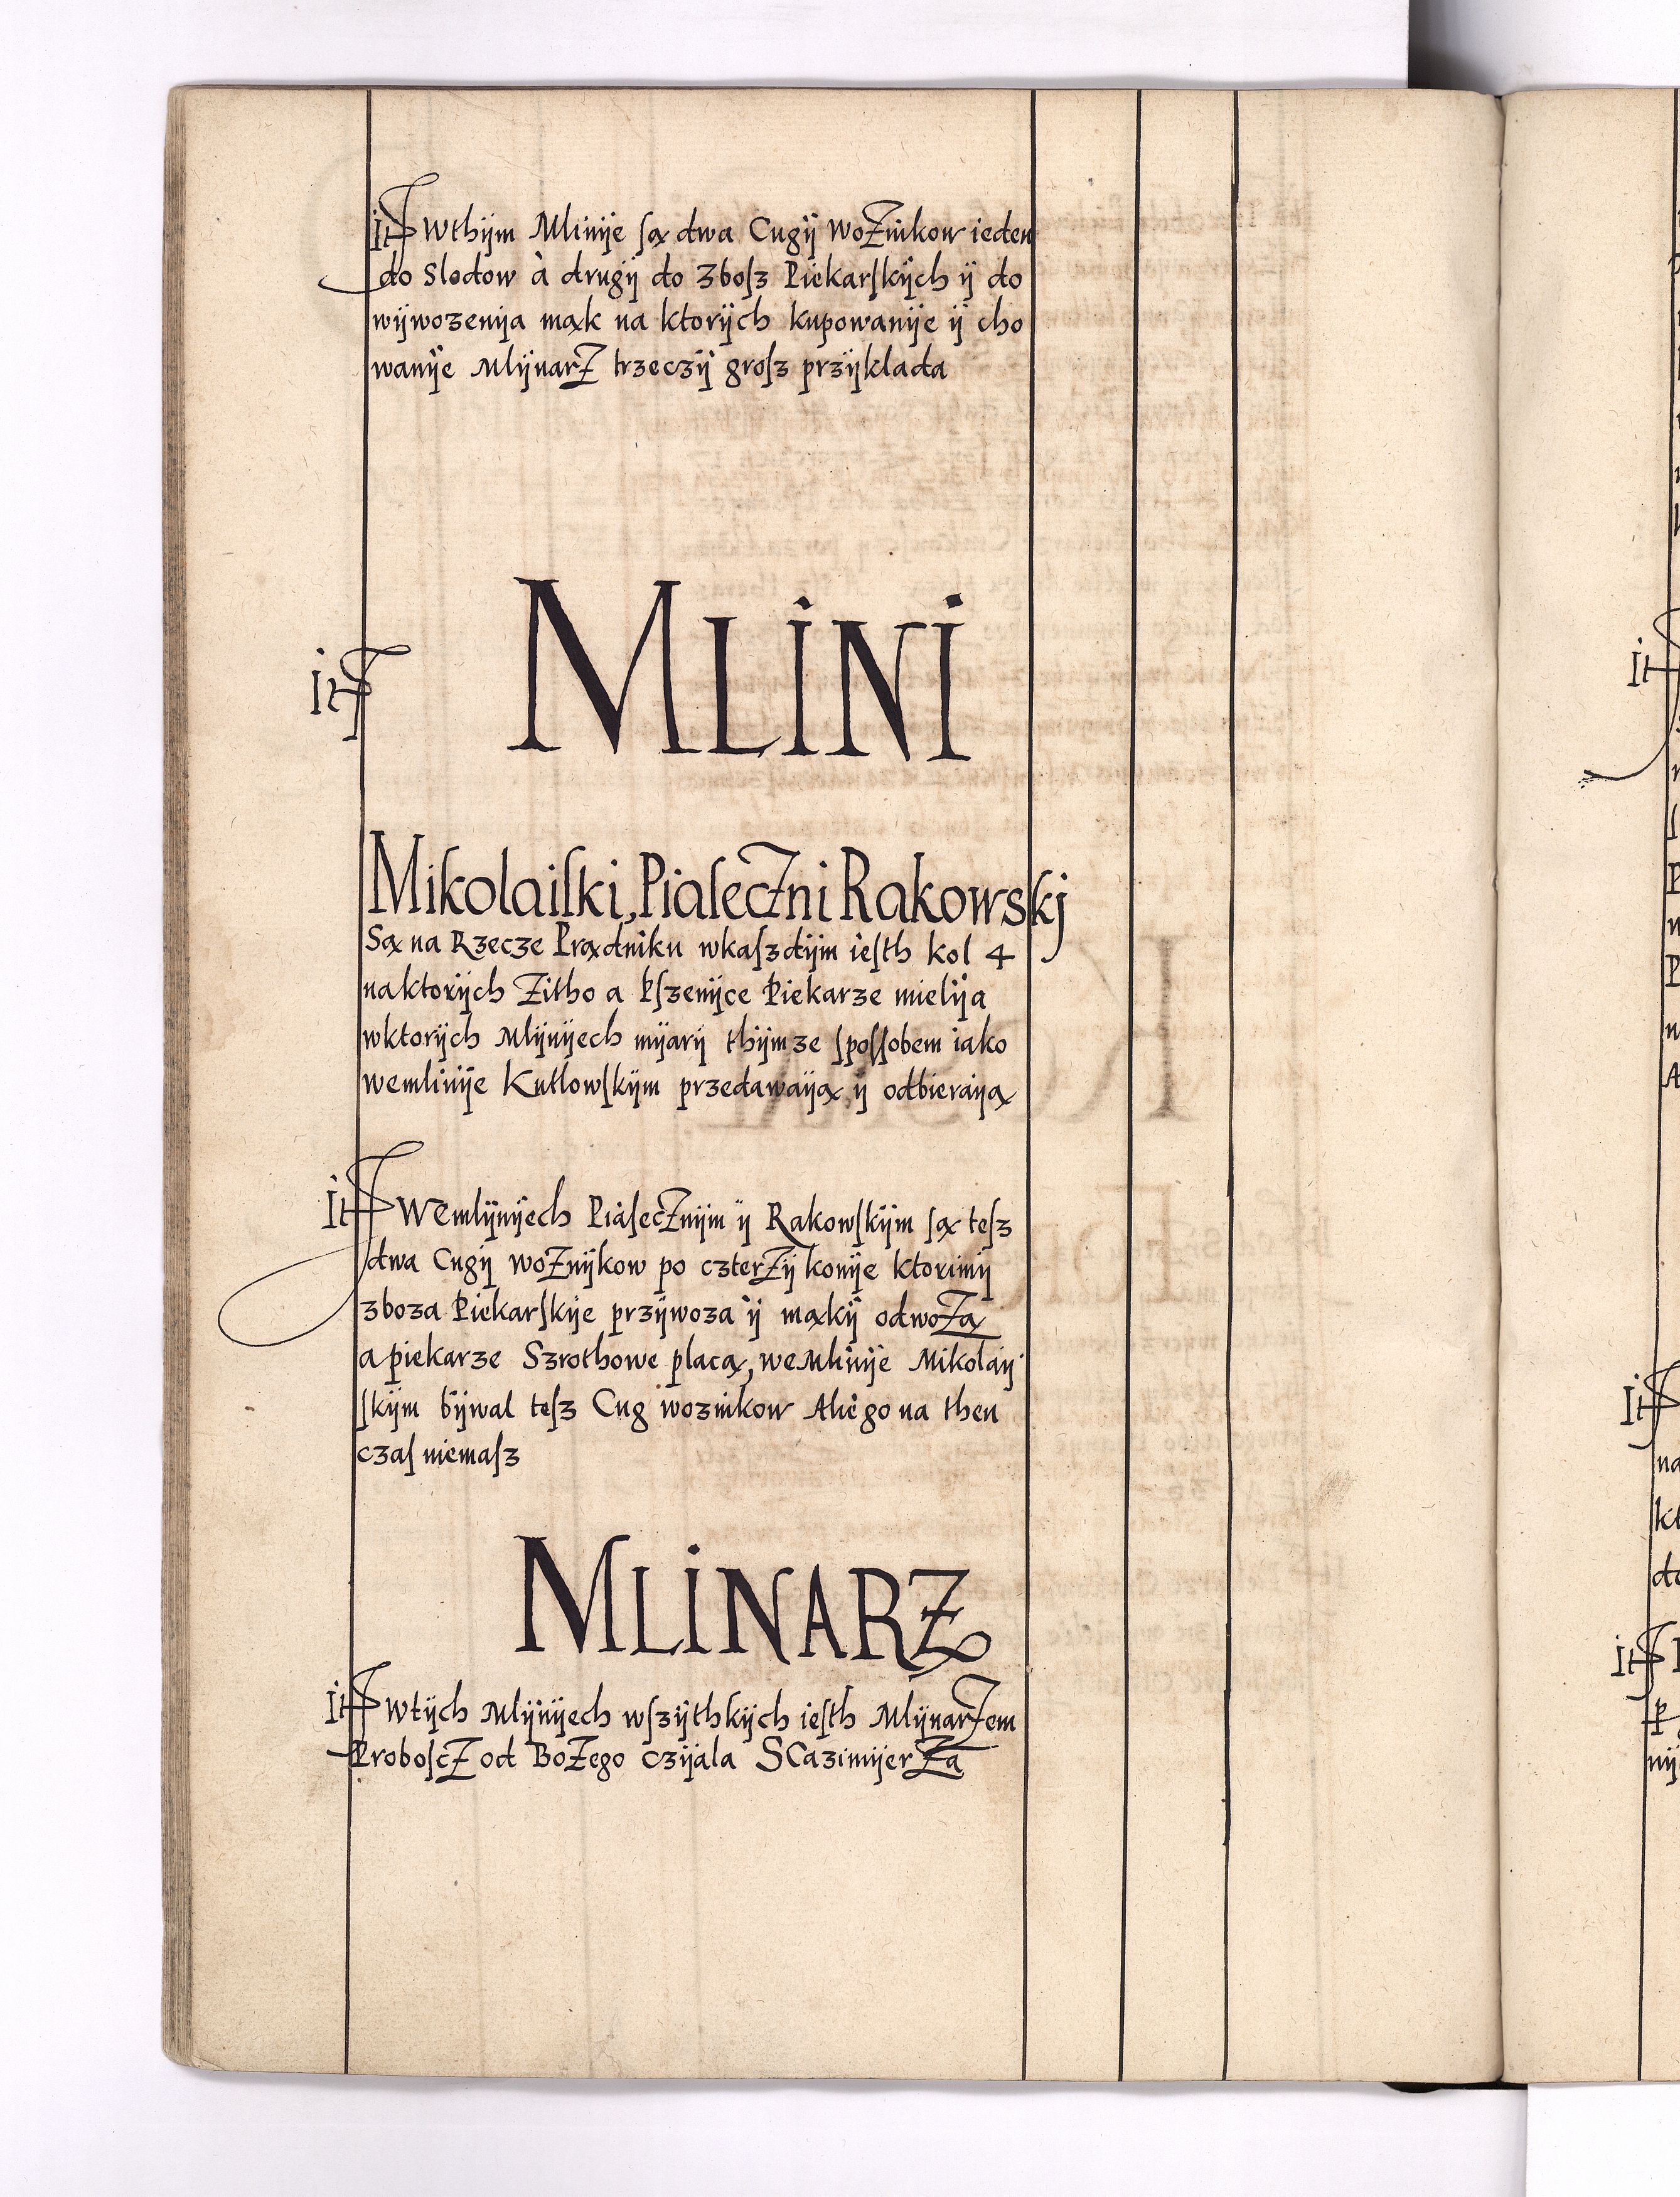 It Wthÿm Mlinÿe ſą dwa Cugÿ WoZnikow ieden
do Slodow à drugÿ do zboſz Piekarſkÿch ÿ do
wÿwozenÿa mąk na ktorÿch kupowanÿe ÿ cho
wanÿe MlÿnarZ trzeczÿ groſz przÿklada
It MLINI
Mikolaiſki, PiaſecZni Rakowskj
Są na Rzecze Prądniku wkaſzdÿm ieſth kol 4
naktorÿch Zitho a Pſzenÿce Piekarze mielÿa
wktorÿch Mlÿnÿech mÿarÿ thÿmze ſpoſſobem iako
wemlinÿe Kutlowſkÿm przedawaÿą ÿ odbieraÿą
It Wemlÿnÿech PiaſecZnÿm ÿ Rakowſkÿm ſą teſz
dwa Cugÿ woZnÿkow po czterZÿ konÿe ktorimÿ
zboza Piekarſkÿe przÿwoza ÿ mąkÿ odwoZą
a piekarze Szrothowe placą, weMlinÿe Mikolaÿ
ſkÿm bÿwal teſz Cug woznikow Aliego na then
czaſ niemaſz
MLINARZ
It Wtÿch Mlÿnÿech wſzÿthkÿch ieſth MlÿnarZem
ProboſcZ od BoZego czÿala SCazimÿerZa